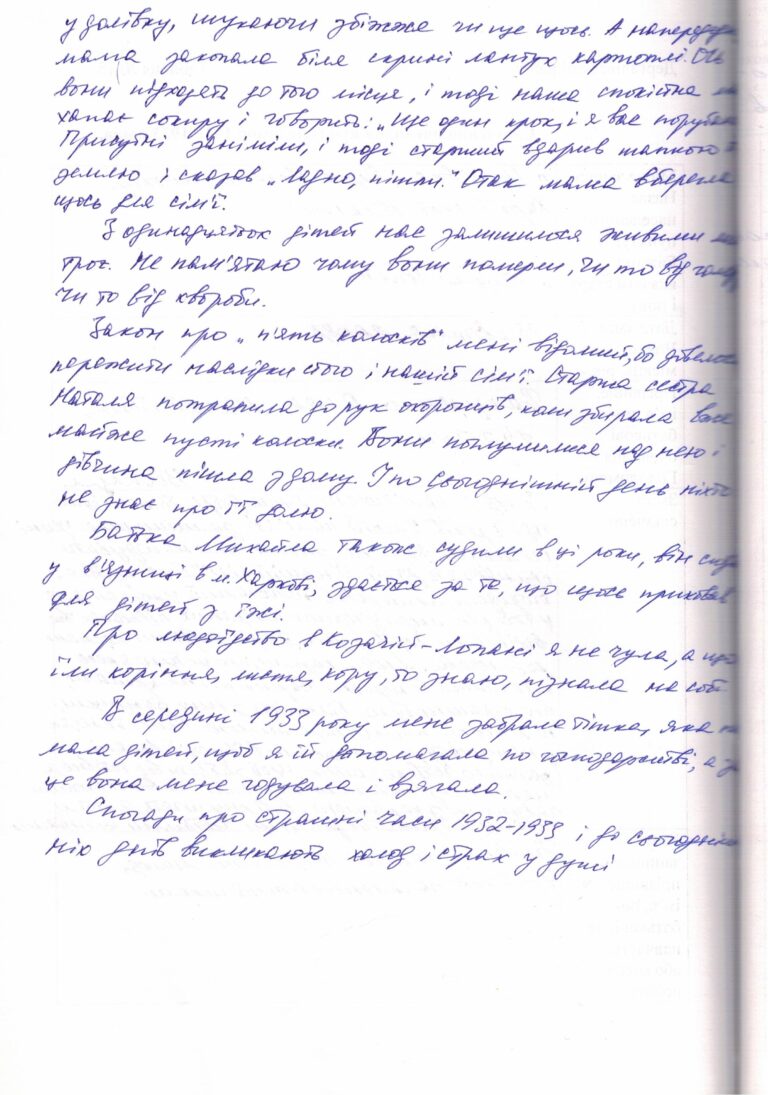 у долівку, шукаючи збіжжя чи ще щось. А напередодні
мама закопала біля скрині лантух картоплі. Ось
вони підходять до того місця, і тоді наша спокійна
хапає сокиру і говорить: „Ще один крок, і я вас порубаю
Присутні заніміли, і тоді старший вдарив шапкою
землю і сказав „Ладно, пішли." Отак мама вберегла
щось для сім'ї.
З одинадцятьох дітей нас залишилося живими
троє. Не пам'ятаю чому вони померли, чи то від голоду
чи то від хвороби.
Закон про „п'ять колосків" мені відомий, бо довелося
пережити наслідки його і нашій сім'ї. Старша сестра
Наталя потрапила до рук охоронців, коли збирала вже
майже пусті колоски. Вони поглумилися над нею і
дівчина пішла з дому. І по сьогоднішній день ніхто
не знає про її долю.
Батька Михайла також судили в ці роки, він сидів
у в'язниці в м. Харкові, здається за те, що щось приховав
для дітей з їжі.
Про людоїдство в Козачій-Лопані я не чула, а що
їли коріння, листя, кору, то знаю, пізнала на собі.
В середині 1933 року мене забрала тітка, яка не
мала дітей, щоб я їй допомагала по господарстві, а за
це вона мене годувала і вдягала.
Спогади про страшні часи 1932-1933 і до сьогодніш
ніх днів викликають холод і страх у душі